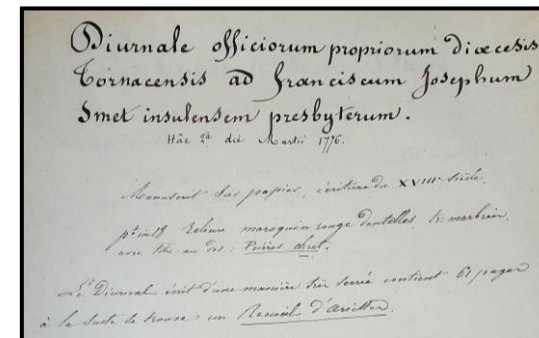 Diurnale officiorum propriorum diœcesis
Tornacensis ad franciscum Josephum
Smet insulensem presbyterum.
Hâc 2ª die Martii 1776.
Manuscrit sur papier, écriture du XVIIIe siècle,
pt in 18 Reliure maroquin rouge dentelles, tr. marbrées.
avec titre au dos : Prières chret.
Le Diurnal écrit d'une manière très serrée contient 61 pages
à la suite se trouve un Recueil d'ariettes.